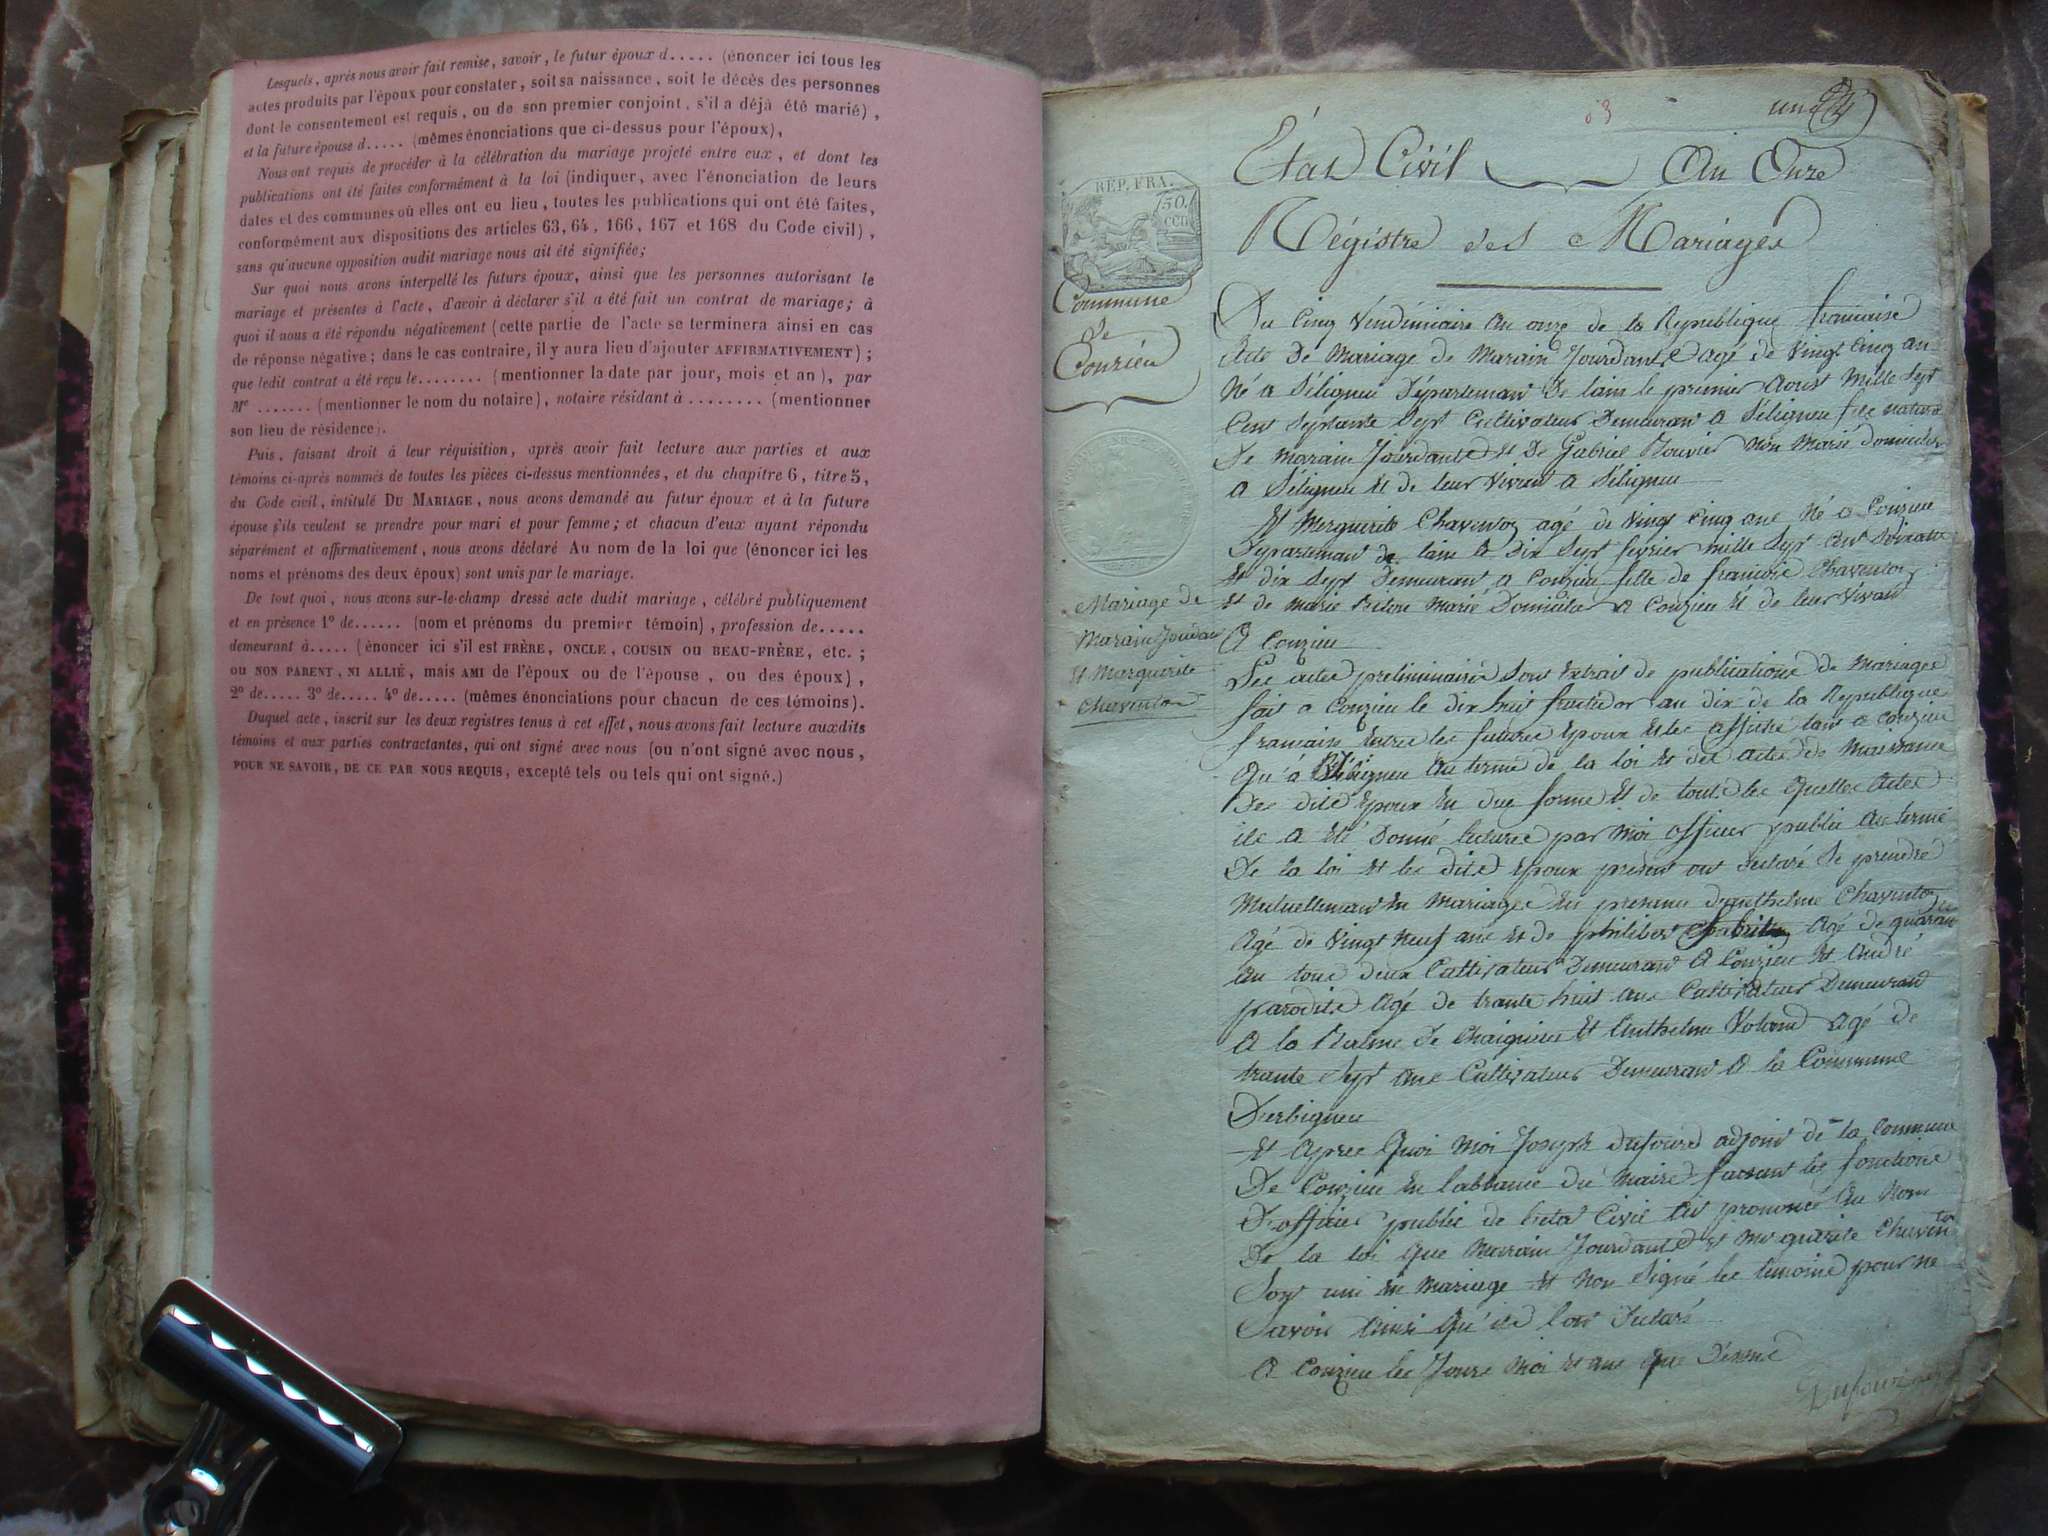 Lesquels, après nous avoir fait remise, savoir, le futur époux d..... (énoncer ici tous les
actes produits par l'époux pour constater, soit sa naissance, soit le décès des personnes
dont le consentement est requis, ou de son premier conjoint, s'il a déjà été marié),
et la future épouse d..... (mêmes énonciations que ci-dessus pour l'époux),
Nous ont requis de procéder à la célébration du mariage projeté entre eux, et dont les
publications ont été faites conformément à la loi (indiquer, avec l'énonciation de leurs
dates et des communes où elles ont eu lieu, toutes les publications qui ont été faites,
conformément aux dispositions des articles 63, 64, 166, 167 et 168 du Code civil),
sans qu'aucune opposition audit mariage nous ait été signifiée;
Sur quoi nous avons interpellé les futurs époux, ainsi que les personnes autorisant le
mariage et présentes à l'acte, d'avoir à déclarer s'il a été fait un contrat de mariage; à
quoi il nous a été répondu négativement (cette partie de l'acte se terminera ainsi en cas
de réponse négative; dans le cas contraire, il y aura lieu d'ajouter AFFIRMATIVEMENT);
que ledit contrat a été reçu le........ (mentionner la date par jour, mois et an), par
Me ....... (mentionner le nom du notaire), notaire résidant à ........ (mentionner
son lieu de résidence).
Puis, faisant droit à leur réquisition, après avoir fait lecture aux parties et aux
témoins ci-après nommés de toutes les pièces ci-dessus mentionnées, et du chapitre 6, titre 5,
du Code civil, intitulé DU MARIAGE, nous avons demandé au futur époux et à la future
épouse s'ils veulent se prendre pour mari et pour femme; et chacun d'eux ayant répondu
séparément et affirmativement, nous avons déclaré Au nom de la loi que (énoncer ici les
noms et prénoms des deux époux) sont unis par le mariage.
De tout quoi, nous avons sur-le-champ dressé acte dudit mariage, célébré publiquement
et en présence 1º de...... (nom et prénoms du premier témoin), profession de.....
demeurant à..... (énoncer ici s'il est FRÈRE, ONCLE, COUSIN OU BEAU-FRÈRE, etc.;
ou NON PARENT, NI ALLIÉ, mais AMI de l'époux ou de l'épouse, ou des époux),
2º de..... 3º de..... 4º de..... (mêmes énonciations pour chacun de ces témoins).
Duquel acte, inscrit sur les deux registres tenus à cet effet, nous avons fait lecture auxdits
témoins et aux parties contractantes, qui ont signé avec nous (ou n'ont signé avec nous,
POUR NE SAVOIR, DE CE PAR NOUS REQUIS, excepté tels ou tels qui ont signé.)
un
État Civil An Onze
Régistre des Mariages
REP. FRA.
50. cen
Commune
de
Conzieu
Mariage de
Marain Jourdan
Et Marguerite
Chaventon
Du Cinq Vendémiaire An onze de la Republique francaise
Acte De Mariage de Marain Jourdant Agé de Vingt Cinq an
Né a Séligneu Département De lain le premier Aoust Mille Sept
Cent Septante Sept Cultivateur Demeurant a Séligneu
De Marain Jourdant Et De Gabriel Bouvier Non Marié
a Séligneu Et de leur Vivant a Séligneu
Et Merguerite Chaventon agé de Vingt Cinq ans Né a Conzieu
Departement de lain le Dix Sept fevrier mille Sept Cent Soixante
Et dix Sept Demeurant a Conzieu fille de francois Chaventon
Et de Marie Marié a Conzieu Et de leur Vivant
A Conzieu
Les actes preliminaires Sont Extrait de publications de Mariages
fait a Conzieu le dix huit fructidor an dix de la Republique
francaise Entre les futures Epoux Et les affiche tant a Conzieu
Qu'a Séligneu Au terme de la loi Et des actes de Naissance
Des dits Epoux En due forme Et de toutes les quelles Actes
ile A Eté Donné lecture par Moi officier publie Au terme
De la loi Et les dits Epoux présent ont declaré Se prendre
Mutuellement En Mariage En presence danthelme Chaventon
Agé de Vingt Neuf ans Et de philibert Agé de quarante
An tous deux Cultivateur Demeurant A Conzieu Et André
Agé de trante huit ans Cultivateur Demeurant
A la Balme Et Anthelme Agé de
trante Sept ans Cultivateur Demeurant A la Commune
Et Apres Quoi Moi Joseph Dufour adjoint de la Commune
De Conzieu En labsance du Maire faisant les fonctions
D'officier publie de letat Civil Ai prononcé Au Nom
De la loi Que Marain Jourdant Et Merguerite Chaventon
Sont uni En Mariage Et Non Signé les temoins pour ne
Savoir Ainsi Qu'ils lont Declaré
A Conzieu les Jours Moi Et ans Que
Dufour